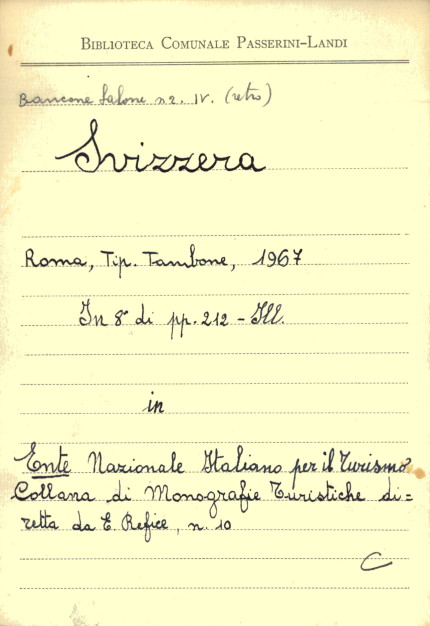 BIBLIOTECA COMUNALE PASSERINI-LANDI
Bancone Salone n2. IV. (retro)
Svizzera
Roma, Tip. Tambone, 1967
In 8° di pp. 212 - Ill.
in
Ente Nazionale Italiano per il Turismo
Collana di Monografie Turistiche di=
retta da E. Refice, n. 10
C